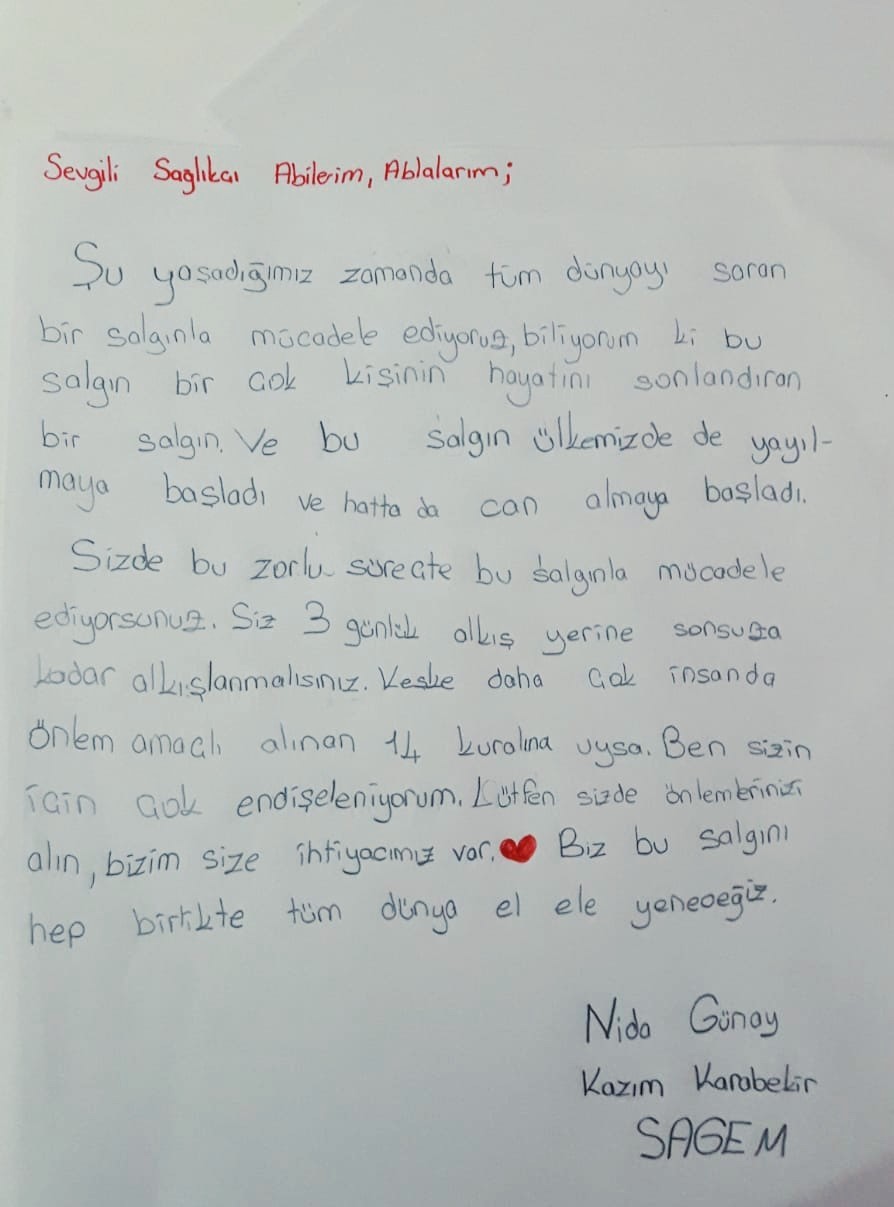 Sevgili Sağlıkcı Abilerim, Ablalarım;
Şu yaşadığımız zamanda tüm dünyayı saran
bir salgınla mücadele ediyoruz, biliyorum ki bu
salgın bir çok kişinin hayatını sonlandıran
bir salgın. Ve bu salgın ülkemizde de yayıl-
maya başladı ve hatta da can almaya başladı.
Sizde bu zorlu süreçte bu salgınla mücadele
ediyorsunuz. Siz 3 günlük alkış yerine sonsuza
kadar alkışlanmalısınız. Keşke daha çok insanda
önlem amaçlı alınan 14 kuralına uysa. Ben sizin
için çok endişeleniyorum. Lütfen sizde önlemlerinizi
alın, bizim size ihtiyacımız var. ❤ Biz bu salgını
hep birlikte tüm dünya el ele yeneceğiz.
Nida Günay
Kazım Karabekir
SAGEM